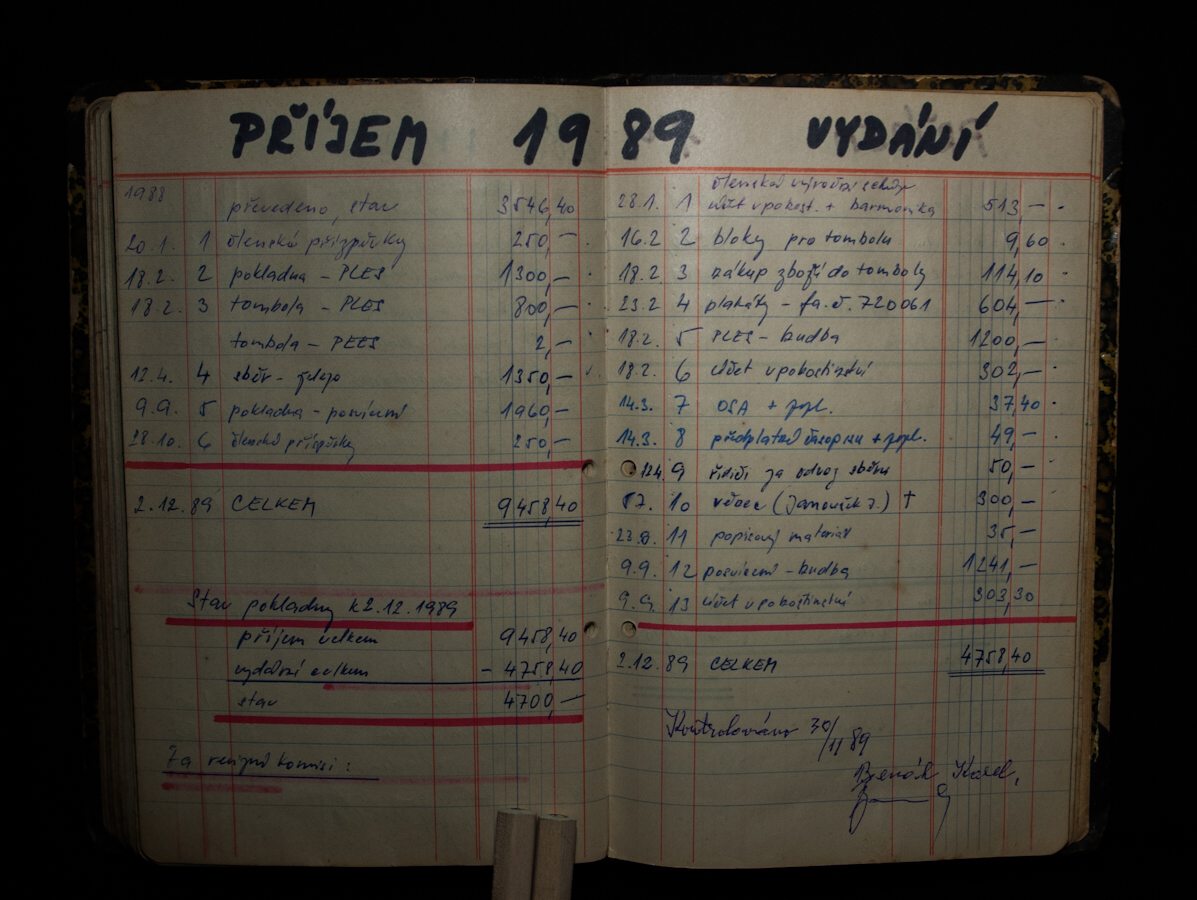 PŘÍJEM 19
1988
převedeno, stav 3546,40
20.1. 1 členské příspěvky 250,—
18.2. 2 pokladna - PLES 1300,—
18.2. 3 tombola - PLES 800,—
tombola - PLES 2,—
12.4. 4 sběr - železo 1350,—
9.9. 5 pokladna - posvícení 1960,—
28.10. 6 členské příspěvky 250,—
2.12.89 CELKEM 9458,40
Stav pokladny k 2.12.1989
příjem celkem 9458,40
vydání celkem - 4758,40
stav 4700,—
Za revizní komisi:
89 VYDÁNÍ
členská výroční schůze
28.1. 1 účet v pohost. + harmonika 513,—
16.2 2 bloky pro tombolu 9,60
18.2. 3 nákup zboží do tomboly 114,10
23.2 4 plakáty - fa.č. 720061 604,—
18.2. 5 PLES - hudba 1200,—
18.2. 6 účet v pohostinství 302,—
14.3. 7 OSA + popl. 37,40
14.3. 8 předplatné časopisu + popl. 49,—
12.4. 9 řidiči za odvoz sběru 50,—
10 věnec († 300,—
11 popisový materiál 35,—
9.9. 12 posvícení - hudba 1241,—
9.9. 13 účet v pohostinství 303,30
2.12.89 CELKEM 4758,40
Kontrolováno 30/11 89
Karel